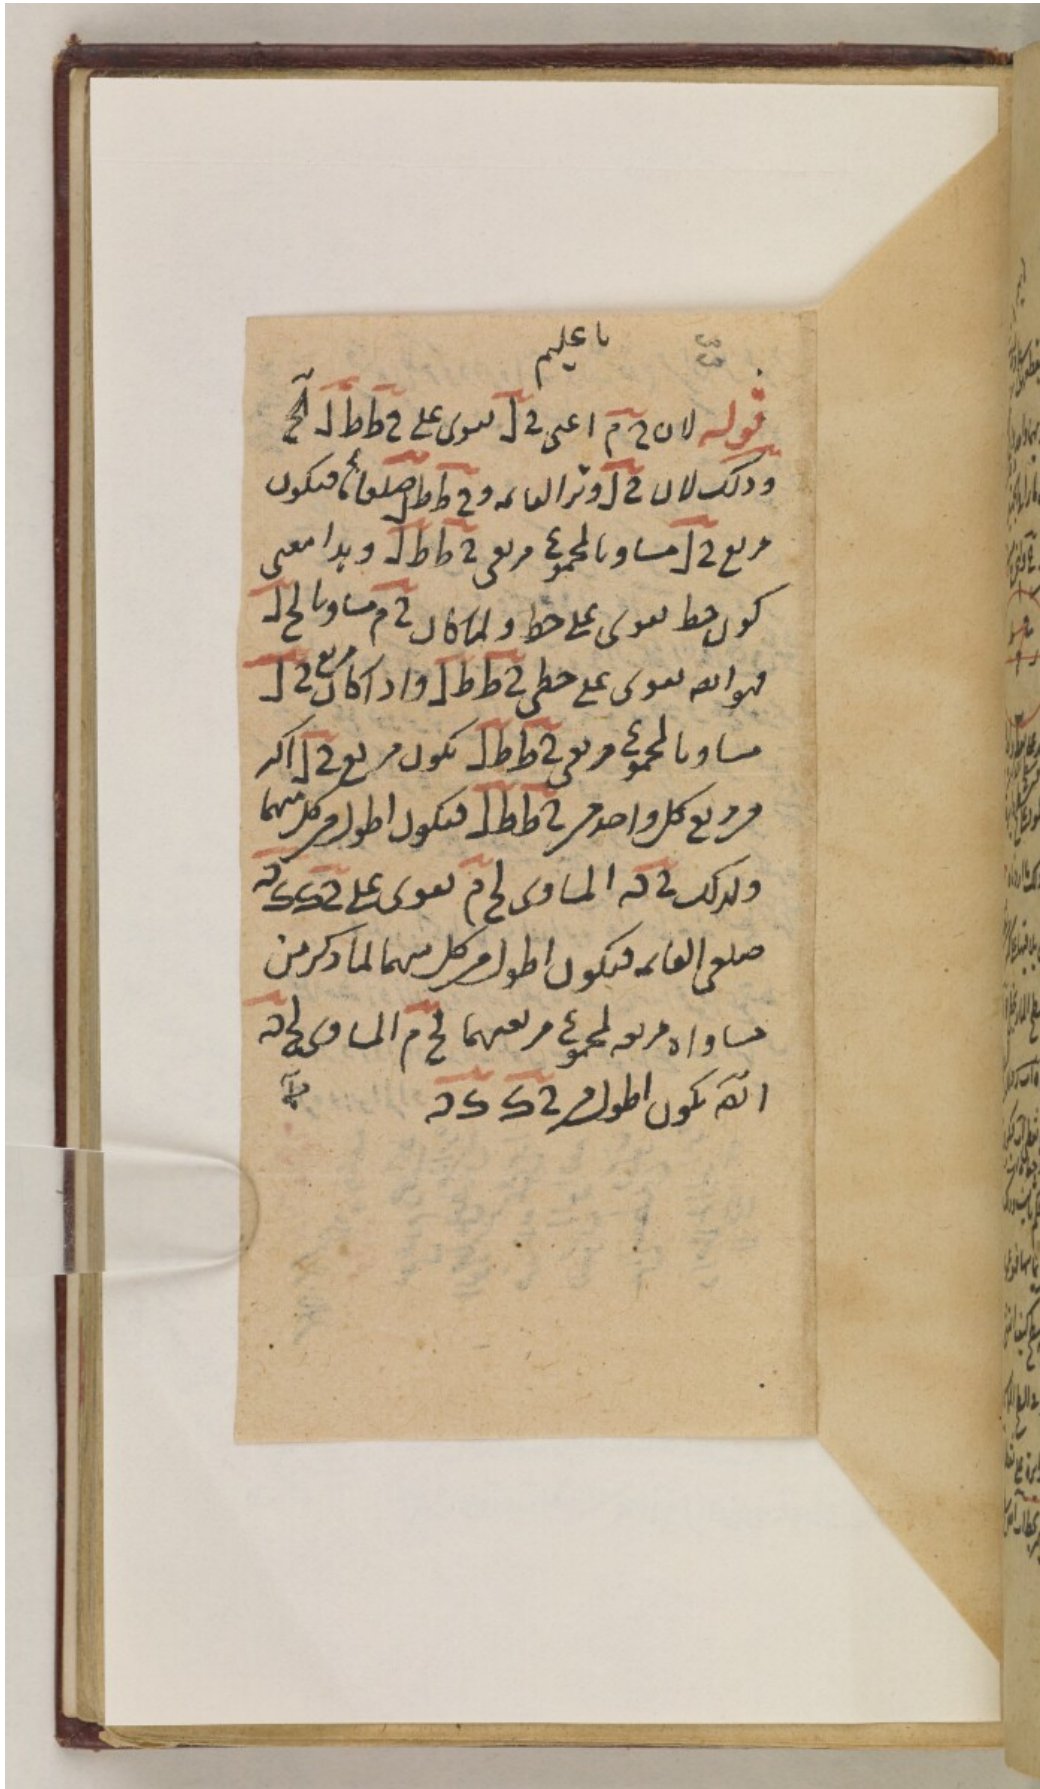 يا عليم
قوله لان ح م اعنى ح ل يقوى على ح ط ط ل الخ
وذلك لان ح ل وتر القائمه و ح ط ط ل ضلعاها فيكون
مربع ح ل مساويا لمجموع مربعى ح ط ط ل وهذا معنى
كون خط يقوى على خط ولما كان ح م مساويا لح ل
فهو ايضا يقوى على خطى ح ط ط ل واذا كان مربع ح ل
مساويا لمجموع مربعى ح ط ط ل يكون مربع ح ل اكبر
من مربع كل واحد من ح ط ط ل فيكون اطول من كل منهما
وكذلك ح ه المساوى لح م يقوى على ح ك ك ه
ضلعى القائمه فيكون اطول من كل منهما لما ذكر من
مساواه مربعه لمجموع مربعيهما فح م المساوى لح ه
ايضا يكون اطول من ح ك ك ه